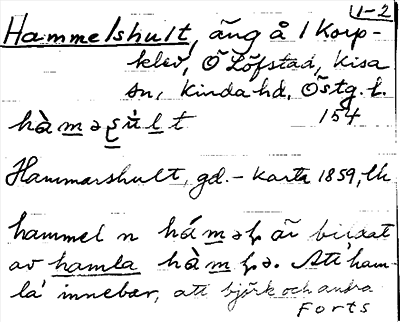 1-2
Hammelshult, äng å 1 Korp-
klev, Ö Löfstad, Kisa
sn, Kinda hd, Östg. l.
154
Hammarshult, gd. – karta 1859, lk
hammel n är bildat
av hamla Att ham-
la innebar, att björk och andra
Forts